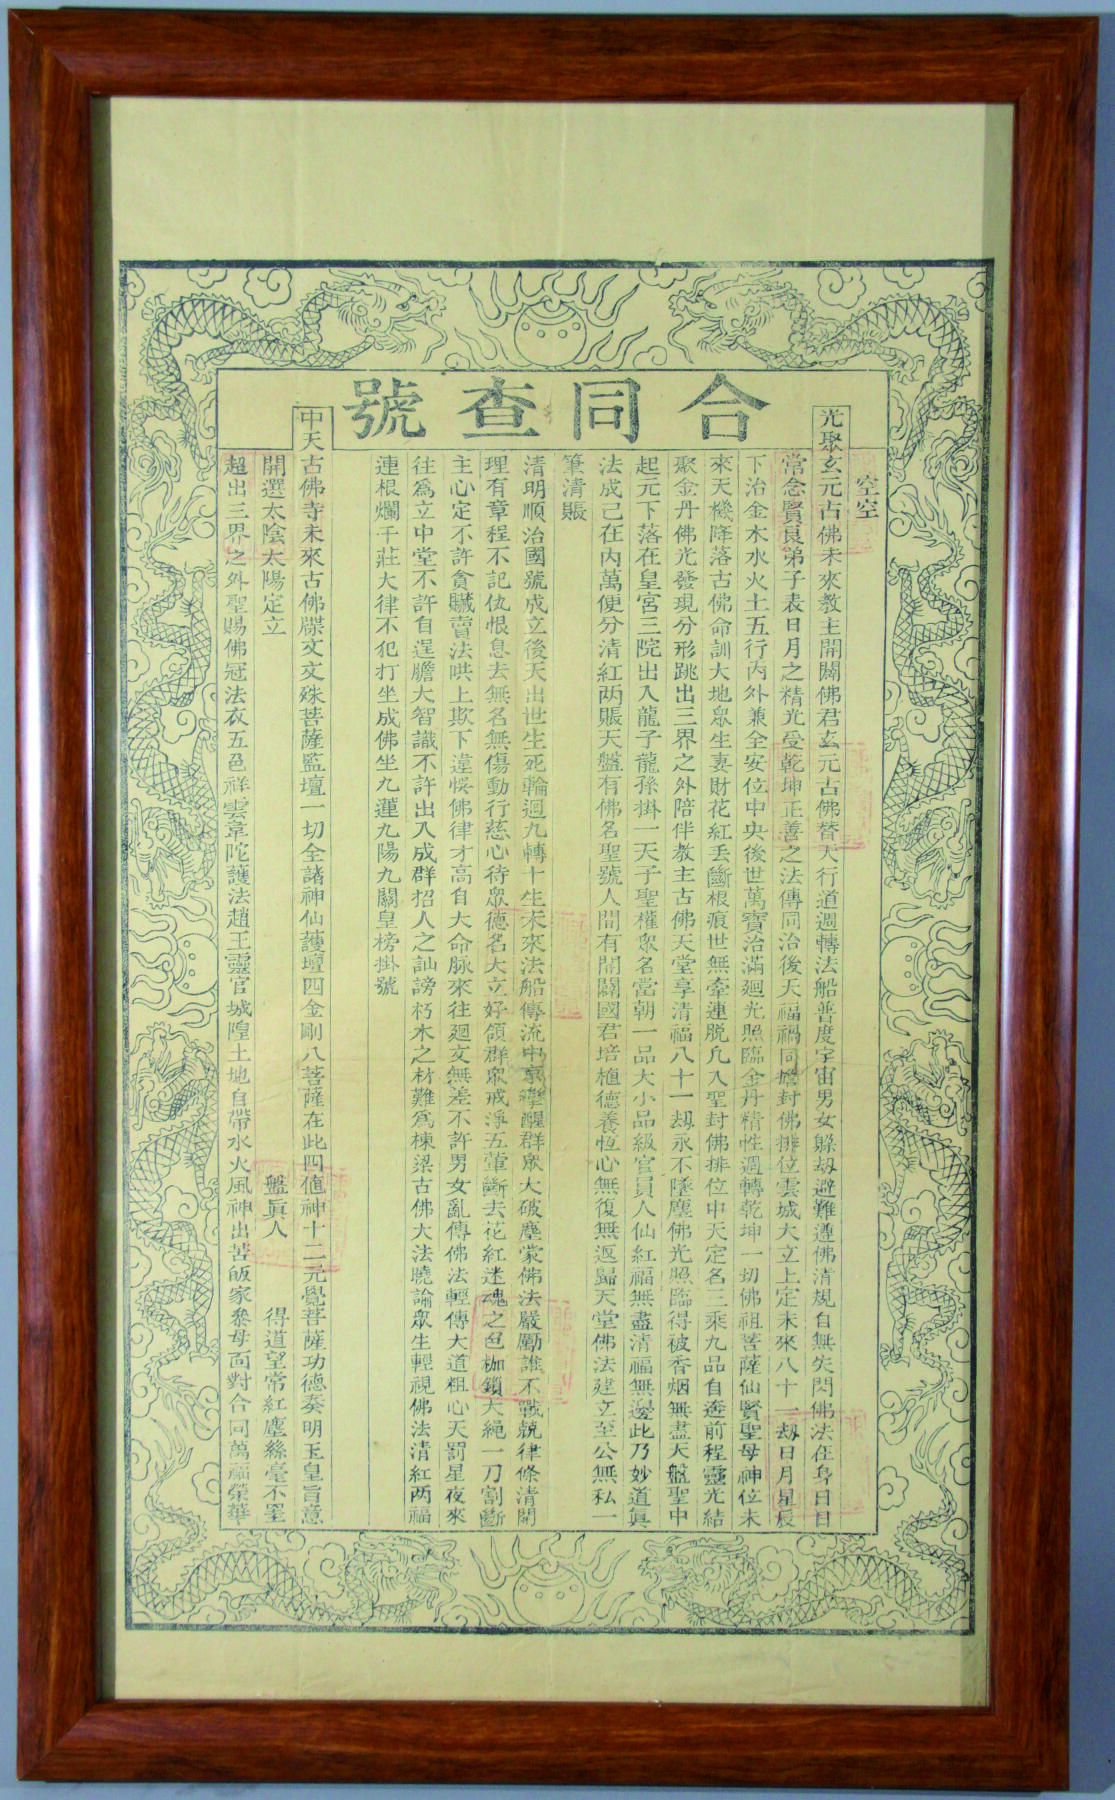 合同查號
空空
光聚玄元古佛未來教主開闢佛君玄元古佛替天行道週轉法船普度宇宙男女躲劫避難遵佛清規自無失閃佛法在身日日
常念賢良弟子表日月之精光受乾坤正善之法傳同治後天福禍同擔封佛排位雲城大立上定未來八十一劫日月星辰
下治金木水火土五行內外兼全安位中央後世萬寶治滿廻光照臨金丹精性週轉乾坤一切佛祖菩薩仙賢聖母神位未
來天機降落古佛命訓大地眾生妻財花紅丟斷根痕世無牽連脫凡入聖封佛排位中天定名三乘九品自逩前程靈光結
聚金丹佛光發現分形跳出三界之外陪伴教主古佛天堂享清福八十一劫永不墜塵佛光照臨得被香烟無盡天盤聖中
起元下落在皇宮三院出入龍子龍孫掛一天子聖權眾名當朝一品大小品級官員人仙紅福無盡清福無邊此乃妙道真
法成己在內萬便分清紅两賬天盤有佛名聖號人間有開闢國君培植德養恆心無復無返歸天堂佛法建立至公無私一
筆清賬
清明順治國號成立後天出世生死輪迴九轉十生未來法船傳流中京驚醒群眾大破塵蒙佛法嚴勵誰不戰兢律條清開
理有章程不記仇恨息去無名無傷動行慈心待眾德名大立好領群眾戒淨五葷斷去花紅迷魂之色枷鎖大繩一刀割斷
主心定不許貪贓賣法哄上欺下違悞佛律才高自大命脉來往廻文無差不許男女亂傳佛法輕傳大道粗心天罰星夜來
往為立中堂不許自逞膽大智識不許出入成群招人之訕謗朽木之材難為棟梁古佛大法曉諭眾生輕視佛法清紅两福
連根爛千莊大律不犯打坐成佛坐九蓮九陽九關皇榜掛號
中天古佛寺未來古佛牒文文殊菩薩監壇一切全諸神仙護壇四金剛八菩薩在此四值神十二元覺菩薩功德奏明玉皇旨意
開選太陰太陽定立 盤真人 得道望常紅塵絲毫不罣
超出三界之外聖賜佛冠法衣五色祥雲韋陀護法趙王靈官城隍土地自帶水火風神出苦皈家叅母面對合同萬福榮華